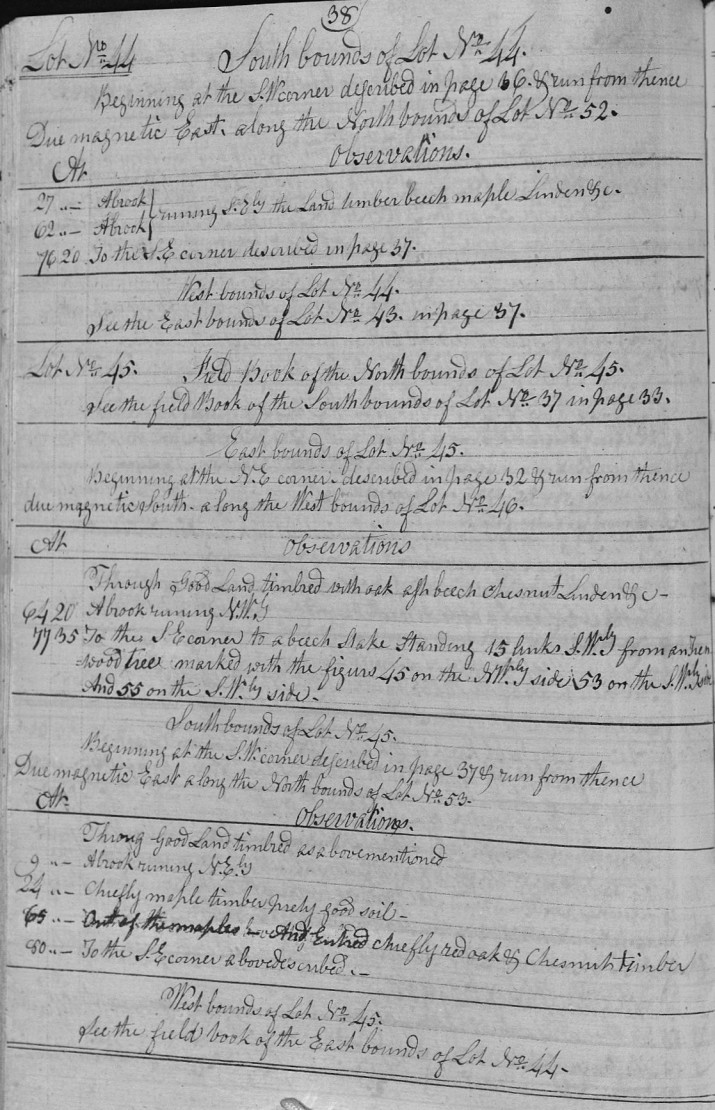 38
Lot No. 44 South bounds of Lot No. 44.
Beginning at the S.W corner described in page 36. & run from thence
Due magnetic East. along the North bounds of Lot No. 52.
At Observations.
27 ..- A brook
62 ..- A brook } runing S.Ely the Land timber beech maple Linden &c.
76 20 To the S.E corner described in page 37.
West bounds of Lot No. 44.
See the East bounds of Lot No. 43. in page 37.
Lot No. 45. Field Book of the North bounds of Lot No. 45.
See the field Book of the South bounds of Lot No. 37 in page 33.
East bounds of Lot No. 45.
Beginning at the N.E corner described in page 32 & run from thence
due magnetic South. along the West bounds of Lot No. 46.
At Observations
Through Good Land timbred with oak ash beech Chesnut Linden &c-
64 20 A brook runing N.Wly
77 35 To the S.E corner to a beech Stake Standing 15 links S.Wly from an Iren
=wood tree marked with the figurs 45 on the NWrly side 53 on the S.Wrly side
And 55 on the S.Wly side.
South bounds of Lot No. 45.
Beginning at the S.W corner described in page 37 & run from thence
Due magnetic East along the North bounds of Lot No. 53.
At Observations.
Throug Good Land timbred as abovementioned
9 ..- A brook runing N.Ely
24 ..- Chiefly maple timber prety good soil-
65 ..- Out of the maples And Entred chiefly red oak & Chesnut timber
80 ..- To the S.E corner abovedescribed.-
West bounds of Lot No. 45.
See the field book of the East bounds of Lot No. 44-